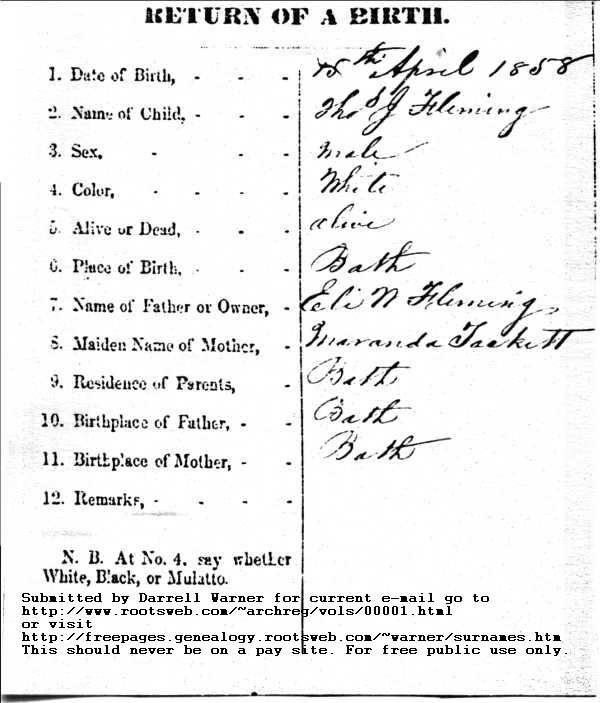 RETURN OF A BIRTH.
1. Date of Birth, - - - 15th April 1858
2. Name of Child, - - - Thos J Fleming
3. Sex, - - - male
4. Color, - - - - White
5. Alive or Dead, - - - alive
6. Place of Birth, - - - Bath
7. Name of Father or Owner, - Eli N Fleming
8. Maiden Name of Mother, - Maranda Tackett
9. Residence of Parents, - Bath
10. Birthplace of Father, - - Bath
11. Birthplace of Mother, - - Bath
12. Remarks, - - - -
N. B. At No. 4, say whether
White, Black, or Mulatto.
Submitted by Darrell Warner for current e-mail go to
http://www.rootsweb.com/~archreg/vols/00001.html
or visit
http://freepages.genealogy.rootsweb.com/~warner/surnames.htm
This should never be on a pay site. For free public use only.